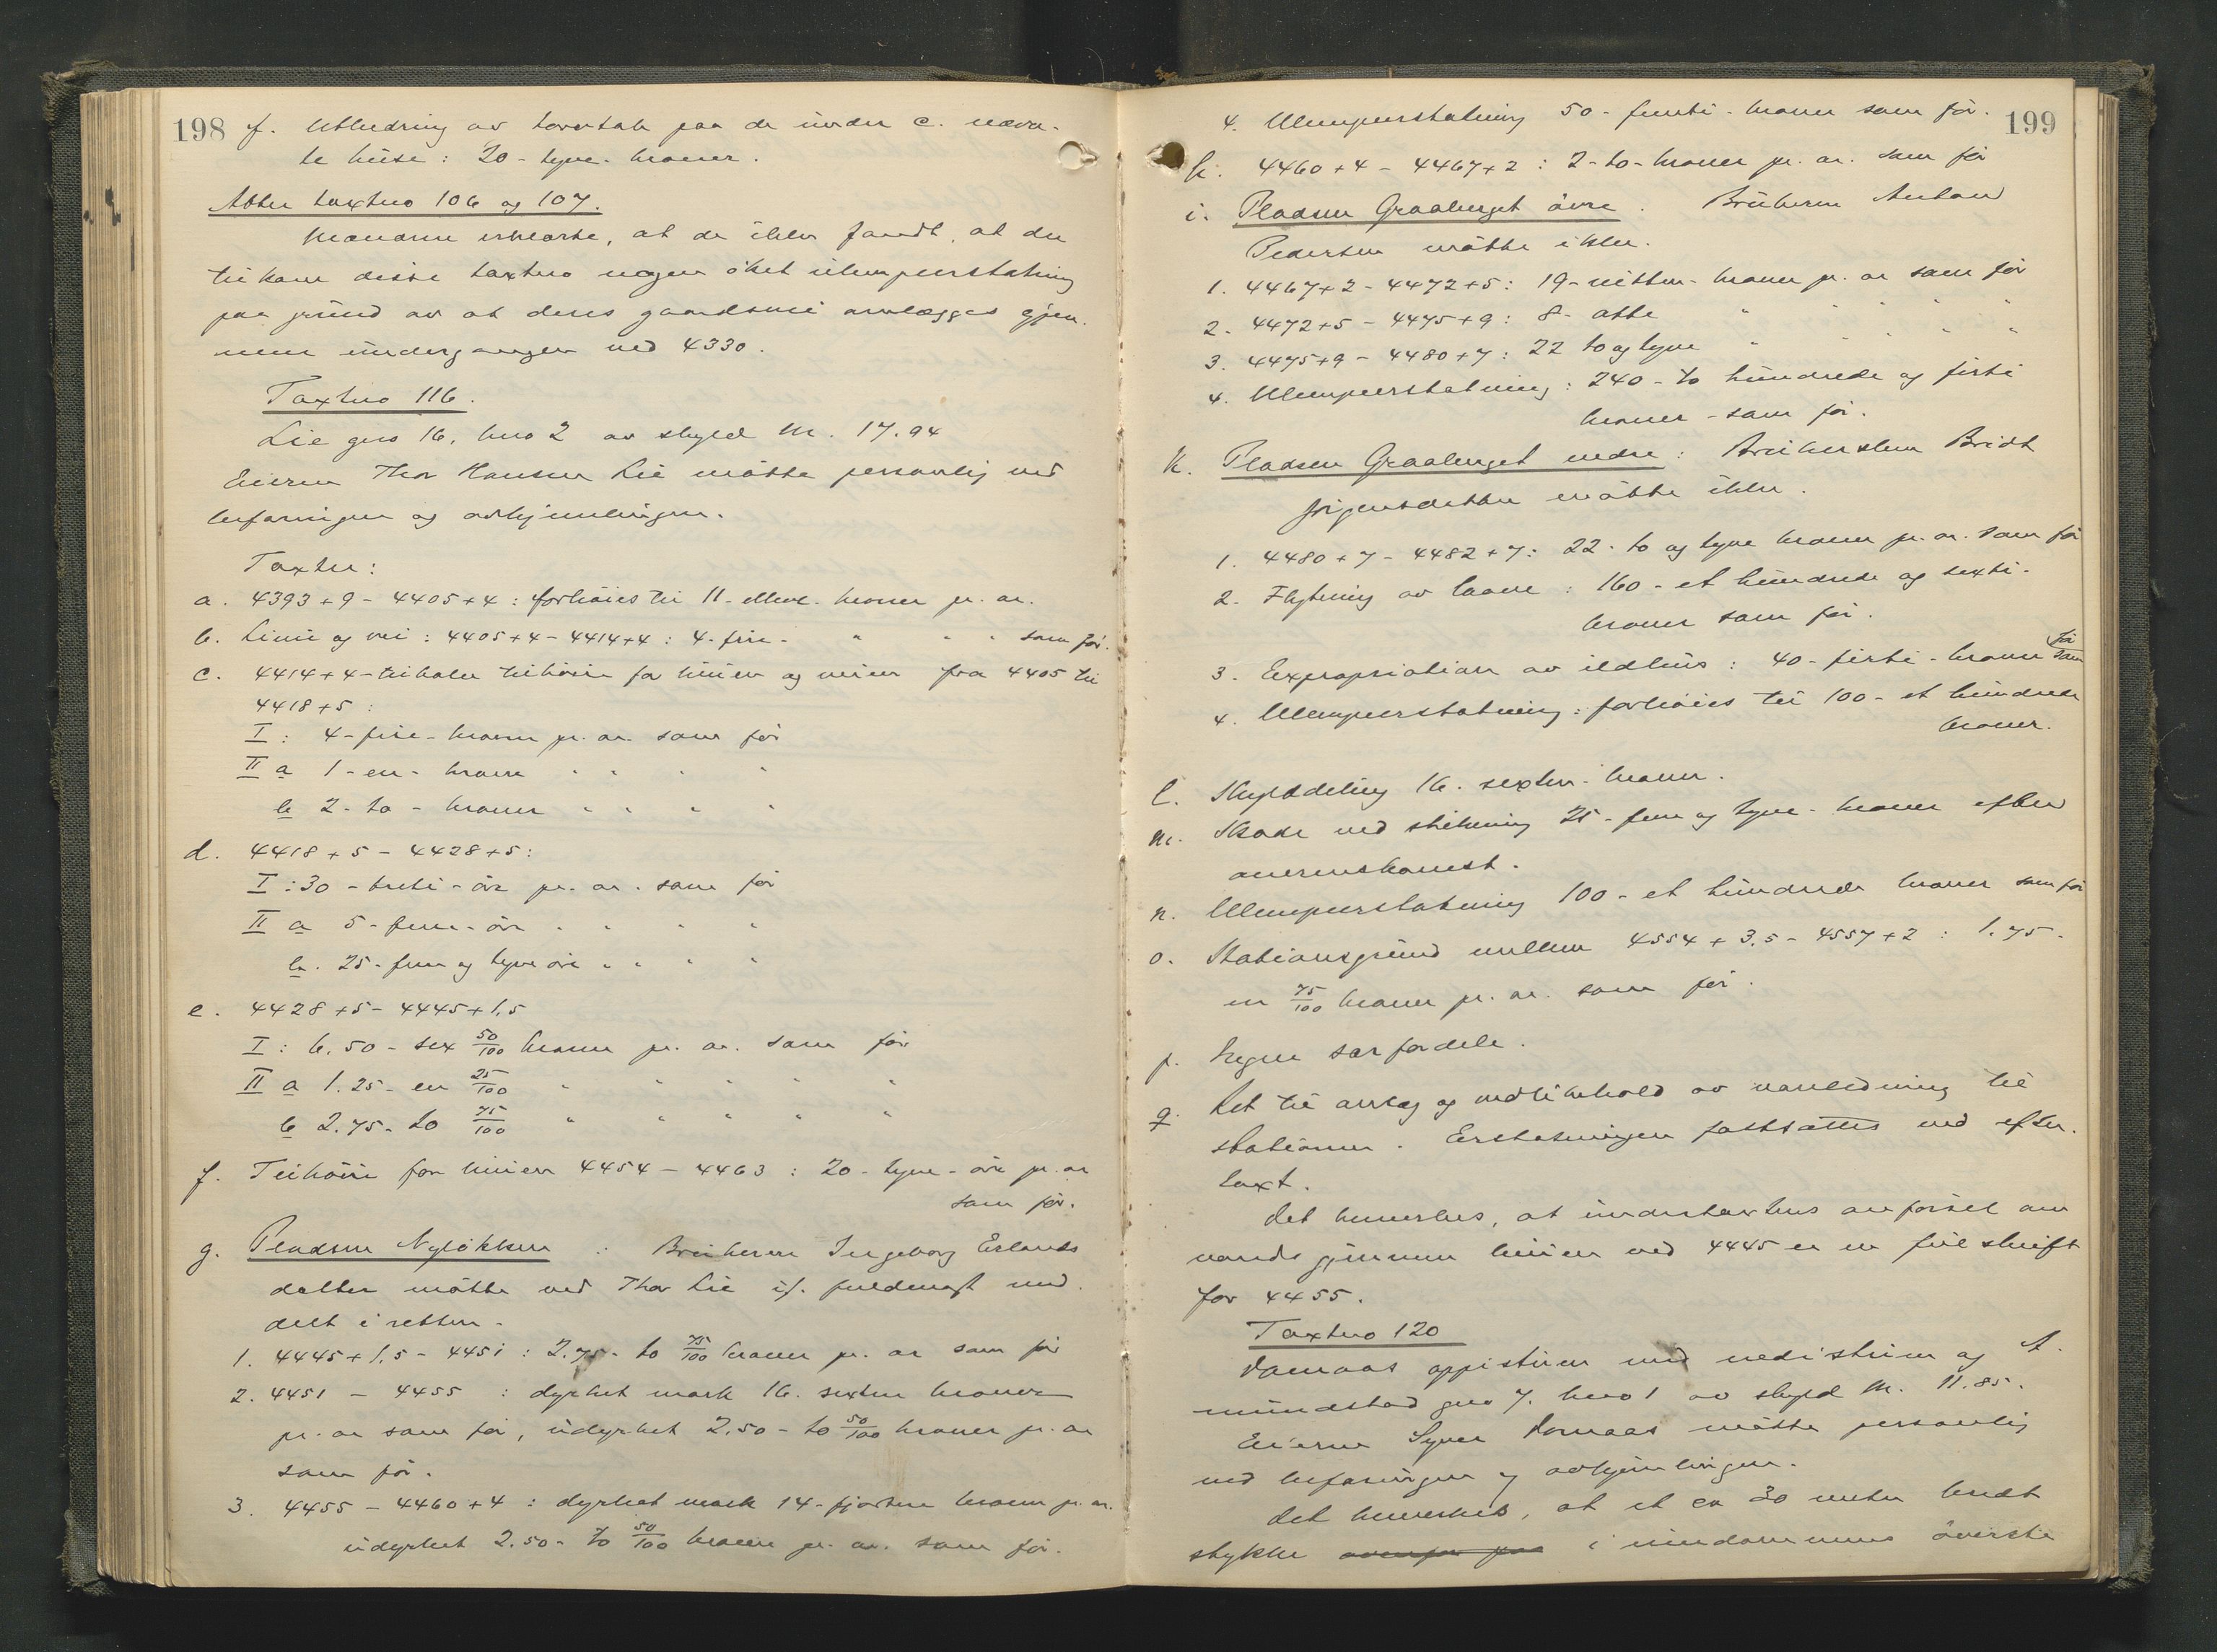 198
f. Utbedring av tovertak paa de under c. nævn-
te huse: 20 - tyve - kroner.
Atter taxtno 106 og 107.
Mændene erklærte, at de ikke fandt, at der
tilkom disse taxtno nogen øket ulempeerstatning
paa grund av at deres gaardsvei omlægges gjen-
nem undergangen ved 4330.
Taxtno 116.
Lie gno 16, bno 2 av skyld M. 17.94
Eieren Thor Hansen Lie møtte personlig ved
befaringen og avhjemlingen.
Taxter:
a. 4393 + 9 - 4405 + 4 : forhøies til 11 - elleve - kroner pr. ar.
b. Linie og vei : 4405 + 4 - 4414 + 4 : 4 - fire - " " " som før.
c. 4414 + 4 - tilhøire for linien og veien fra 4405 til
4418 + 5 :
I : 4 - fire - kroner pr. ar. som før
II a 1 - en - krone " " " "
b 2 - to - kroner " " " "
d. 4418 + 5 - 4428 + 5 :
I : 30 - treti - øre pr. ar. som før
II a 5 - fem - øre " " " "
b. 25 - fem og tyve øre " " " "
e. 4428 + 5 - 4445 + 1,5
I : 6.50 - sex 50/100 kroner pr. ar. som før
II a 1.25 - en 25/100 " " " " "
b 2.75 - to 75/100 " " " " "
f. Tilhøire for linien 4454 - 4463 : 20 - tyve - øre pr. ar
som før.
g. Pladsen Nyløkken : Brukeren Ingeborg Erlands
datter møtte ved Thor Lie if. fuldmagt med-
delt i retten.
1. 4445 + 1,5 - 4451 : 2.75 - to 75/100 kroner pr. ar som før
2. 4451 - 4455 : dyrket mark 16 - sexten kroner
pr. ar som før, udyrket 2.50 - to 50/100 kroner pr. ar
som før.
3. 4455 - 4460 + 4 : dyrket mark 14 - fjorten kroner pr. ar.
udyrket 2.50 - to 50/100 kroner pr. ar. som før.
199
4. Ulempeerstatning 50 - femti - kroner som før.
h. 4460 + 4 - 4467 + 2 : 2 - to - kroner pr. ar. som før
i. Pladsen Graaberget øvre. Brukeren Anton
Pedersen møtte ikke.
1. 4467 + 2 - 4472 + 5 : 19 - nitten - kroner pr. ar som før
2. 4472 + 5 - 4475 + 9 : 8 - otte " " " " "
3. 4475 + 9 - 4480 + 7 : 22 to og tyve " " " " "
4. Ulempeerstatning : 240 - to hundrede og firti
kroner - som før.
k. Pladsen Graaberget nedre : Brukersken Bridt
Jørgensdatter møtte ikke.
1. 4480 + 7 - 4482 + 7 : 22 - to og tyve kroner pr. ar. som før
2. Flytning av laave : 160 - et hundrede og sexti -
kroner som før.
3. Expropriation av ildhus : 40 - firti - kroner som før
4. Ulempeerstatning : forhøies til 100 - et hundrede
kroner.
l. Skylddeling 16 - sexten - kroner.
m. Skade ved stikning 25 - fem og tyve - kroner efter
overenskomst.
n. Ulempeerstatning 100 - et hundrede kroner som før
o. Stationsgrund mellem 4554 + 3,5 - 4557 + 2 : 1.75 -
en 75/100 kroner pr. ar. som før.
p. Ingen særfordele.
q. Ret til anlæg og vedlikehold av vandledning til
stationen. Erstatningen fastsættes ved efter-
taxt.
Det bemerkes, at undertaxtens anførsel om
vands gjennem linien ved 4445 er en feilskrift
for 4455.
Taxtno 120
Dømaas oppistuen med nedistuen og A-
mundstad gno 7. bno 1 av skyld M. 11.85.
Eieren Syver Domaas møtte personlig
ved befaringen og avhjemlingen.
Det bemerkes, at et ca 30 meter bredt
stykke i eiendommens øverste